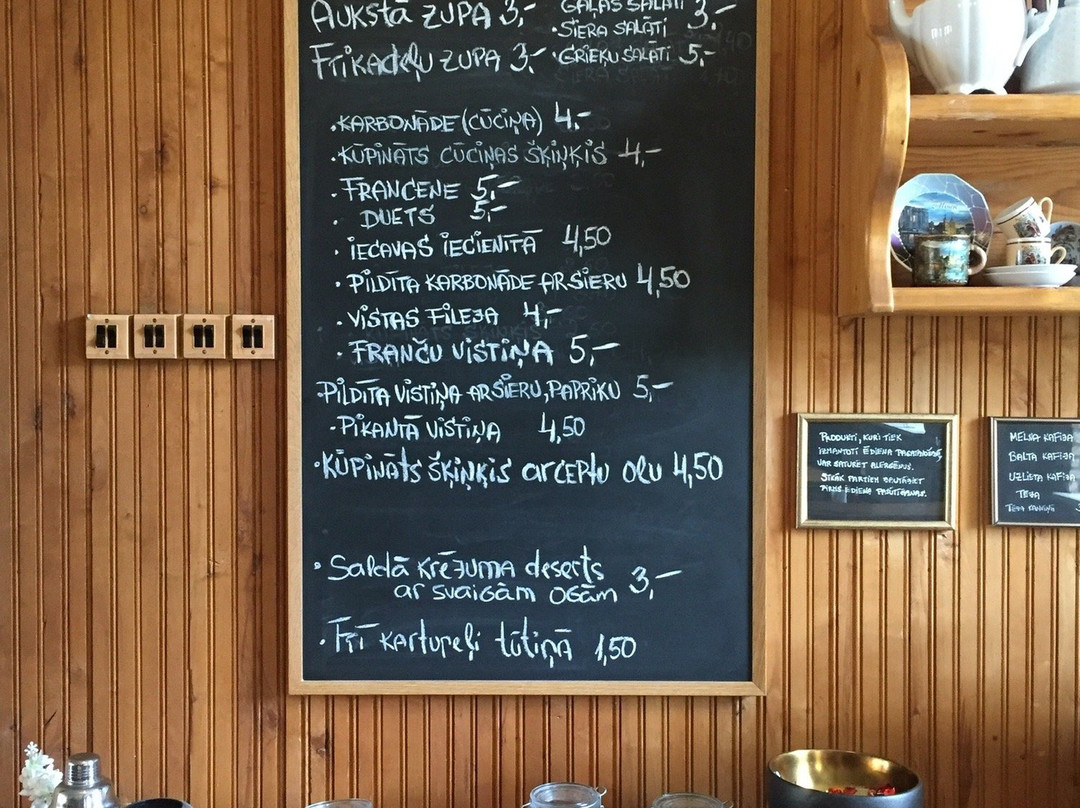 AUKSTĀ ZUPA 3,-
FRIKADEĻU ZUPA 3,-
GAĻAS SALĀTI
• SIERA SALĀTI 3,-
• GRIEĶU SALĀTI 5,-
• KARBONĀDE (CŪCIŅA) 4,-
• KŪPINĀTS CŪCIŅAS ŠĶIŅĶIS 4,-
• FRANCENE 5,-
• DUETS 5,-
• IECAVAS IECIENĪTĀ 4,50
• PILDĪTA KARBONĀDE AR SIERU 4,50
• VISTAS FILEJA 4,-
• FRANČU VISTIŅA 5,-
• PILDĪTA VISTIŅA AR SIERU, PAPRIKU 5,-
- PIKANTĀ VISTIŅA 4,50
• KŪPINĀTS ŠĶIŅĶIS ar CEPTU OLU 4,50
• Saldā KRĒJUMA deserts 3,-
ar SVAIGĀM OGĀM
• Frī kartupeļi tūtiņā 1,50
PRODUKTI, KURI TIEK
IZMANTOTI ĒDIENA PAGATAVOŠANĀ,
VAR SATURĒT ALERGĒNUS.
SĪKĀK PAR TIEM JAUTĀJIET
PIRMS ĒDIENA PASŪTĪŠANAS.
MELNA KAFIJA
BALTA KAFIJA
UZLIETA KAFIJA
TĒJA